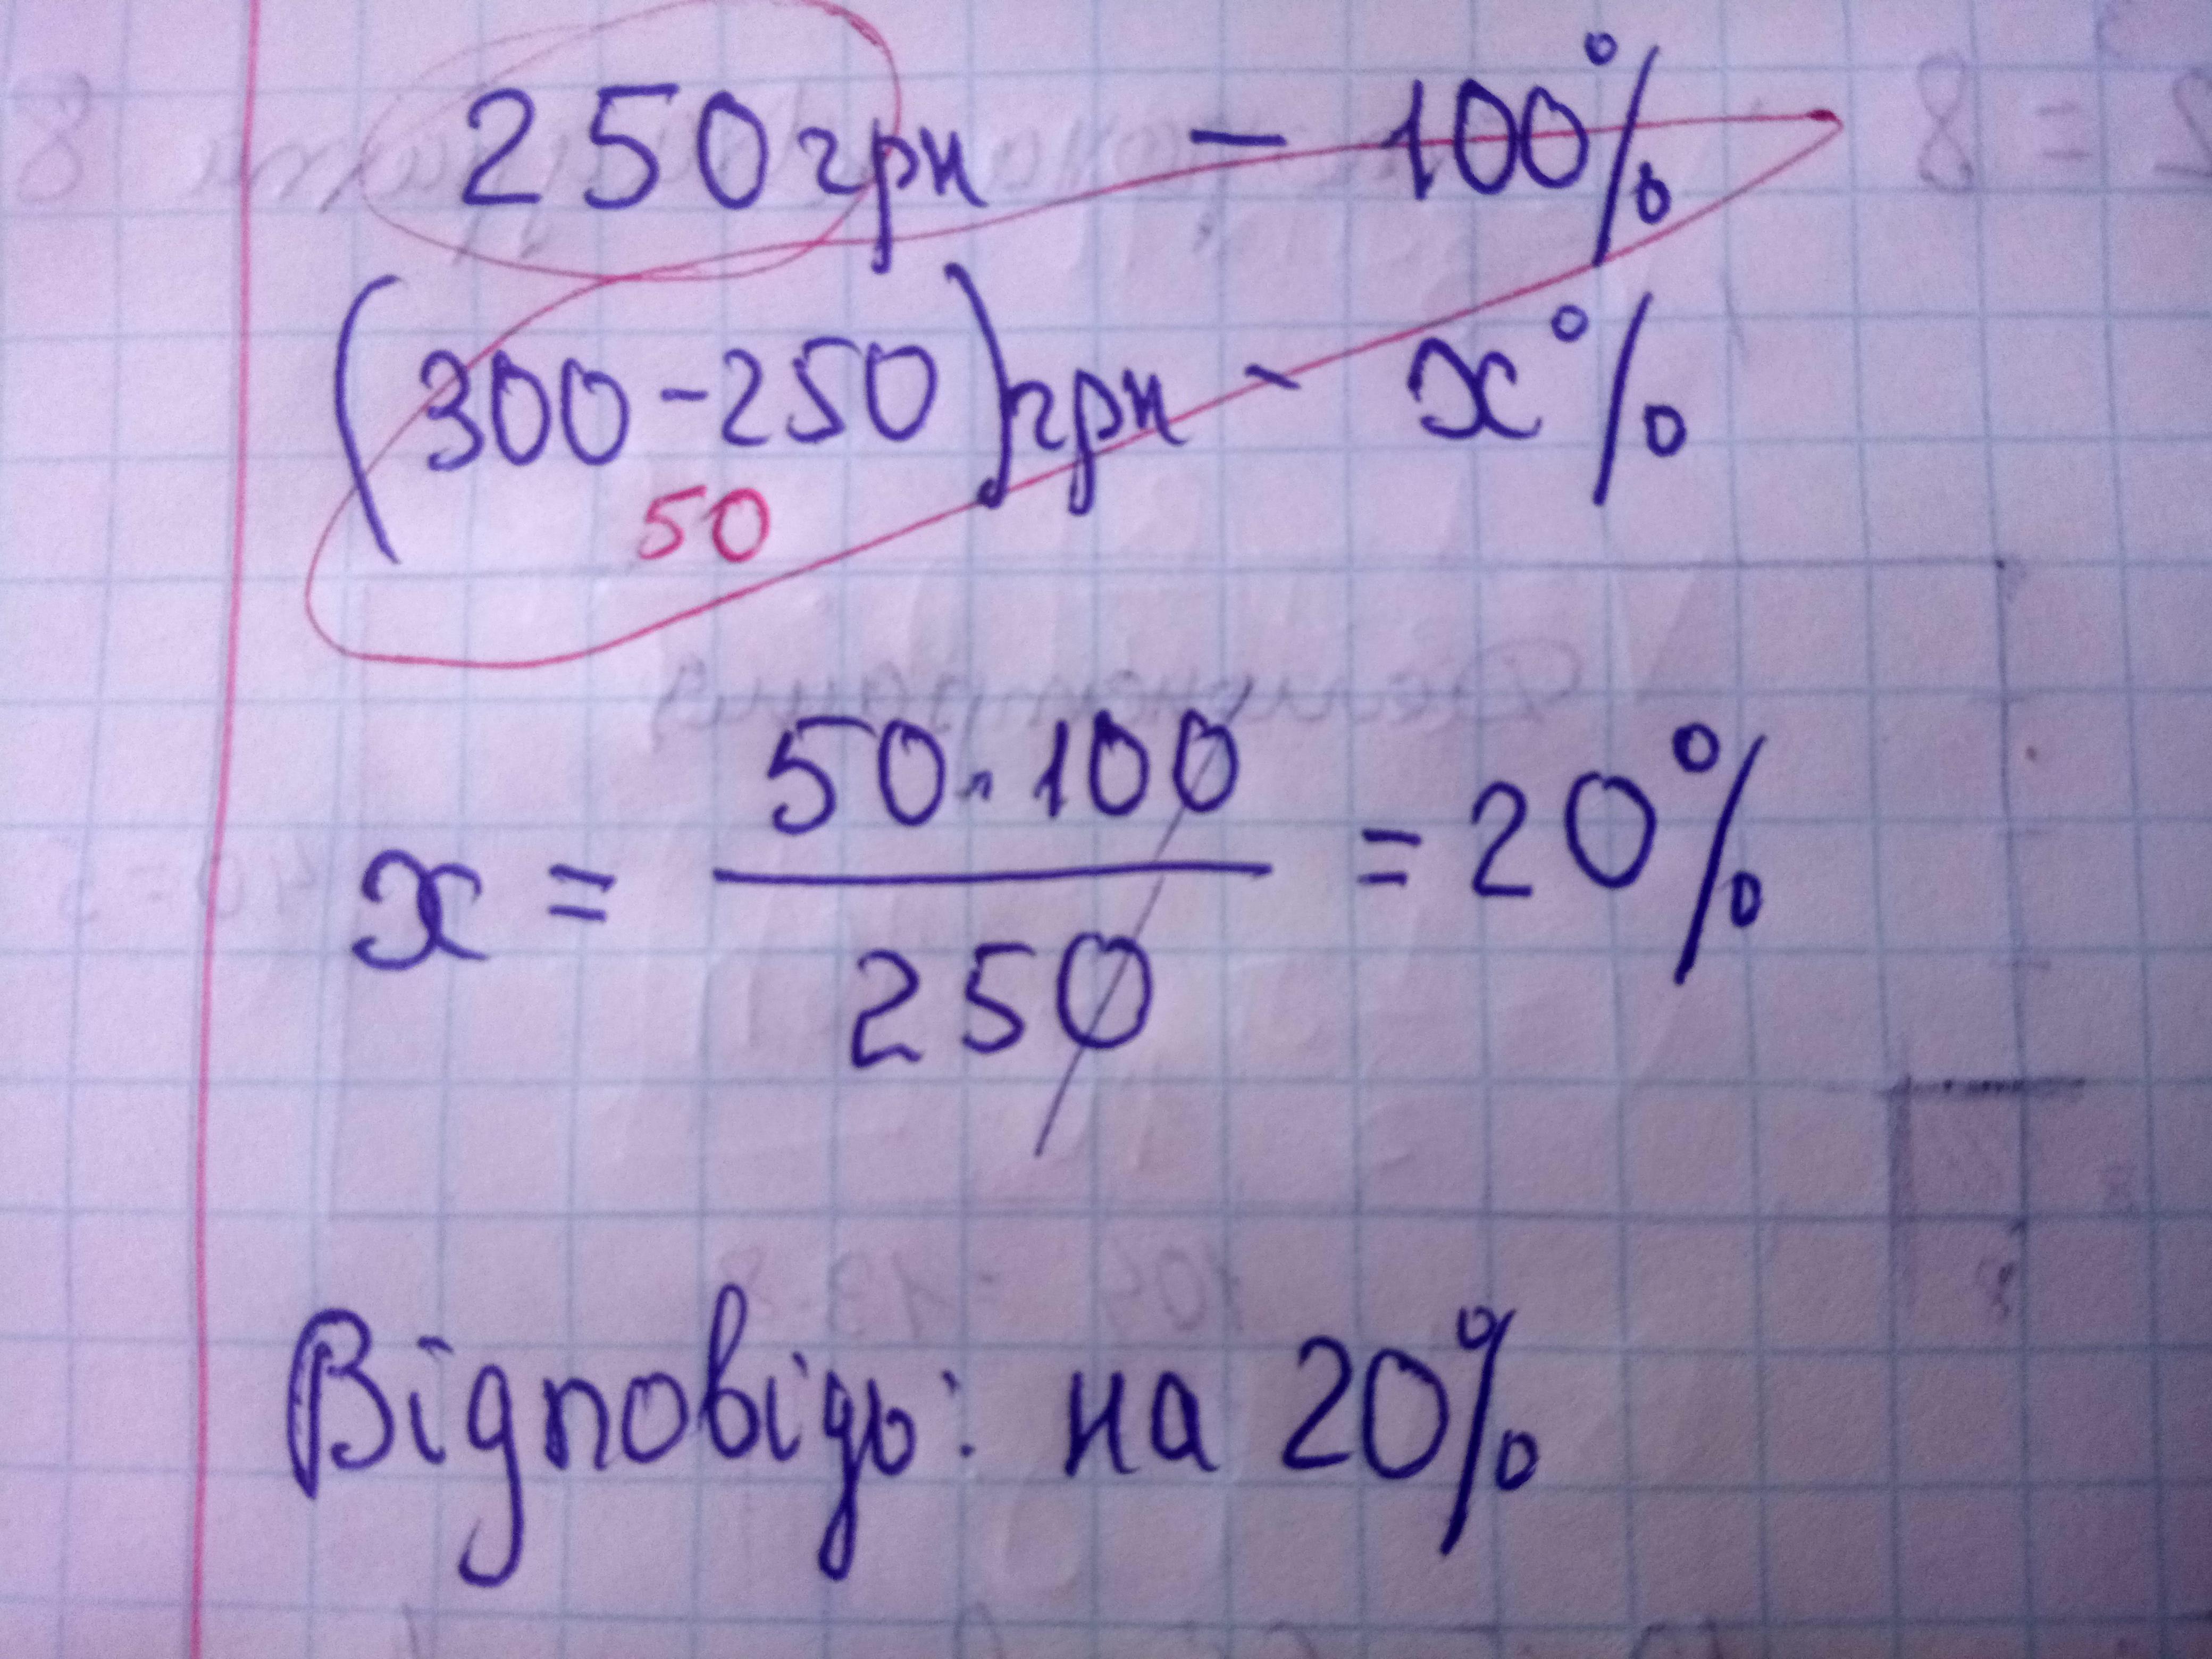 250грн - 100%
(300-250)грн - x%
50
x = 50·100 / 250 = 20%
Відповідь: на 20%